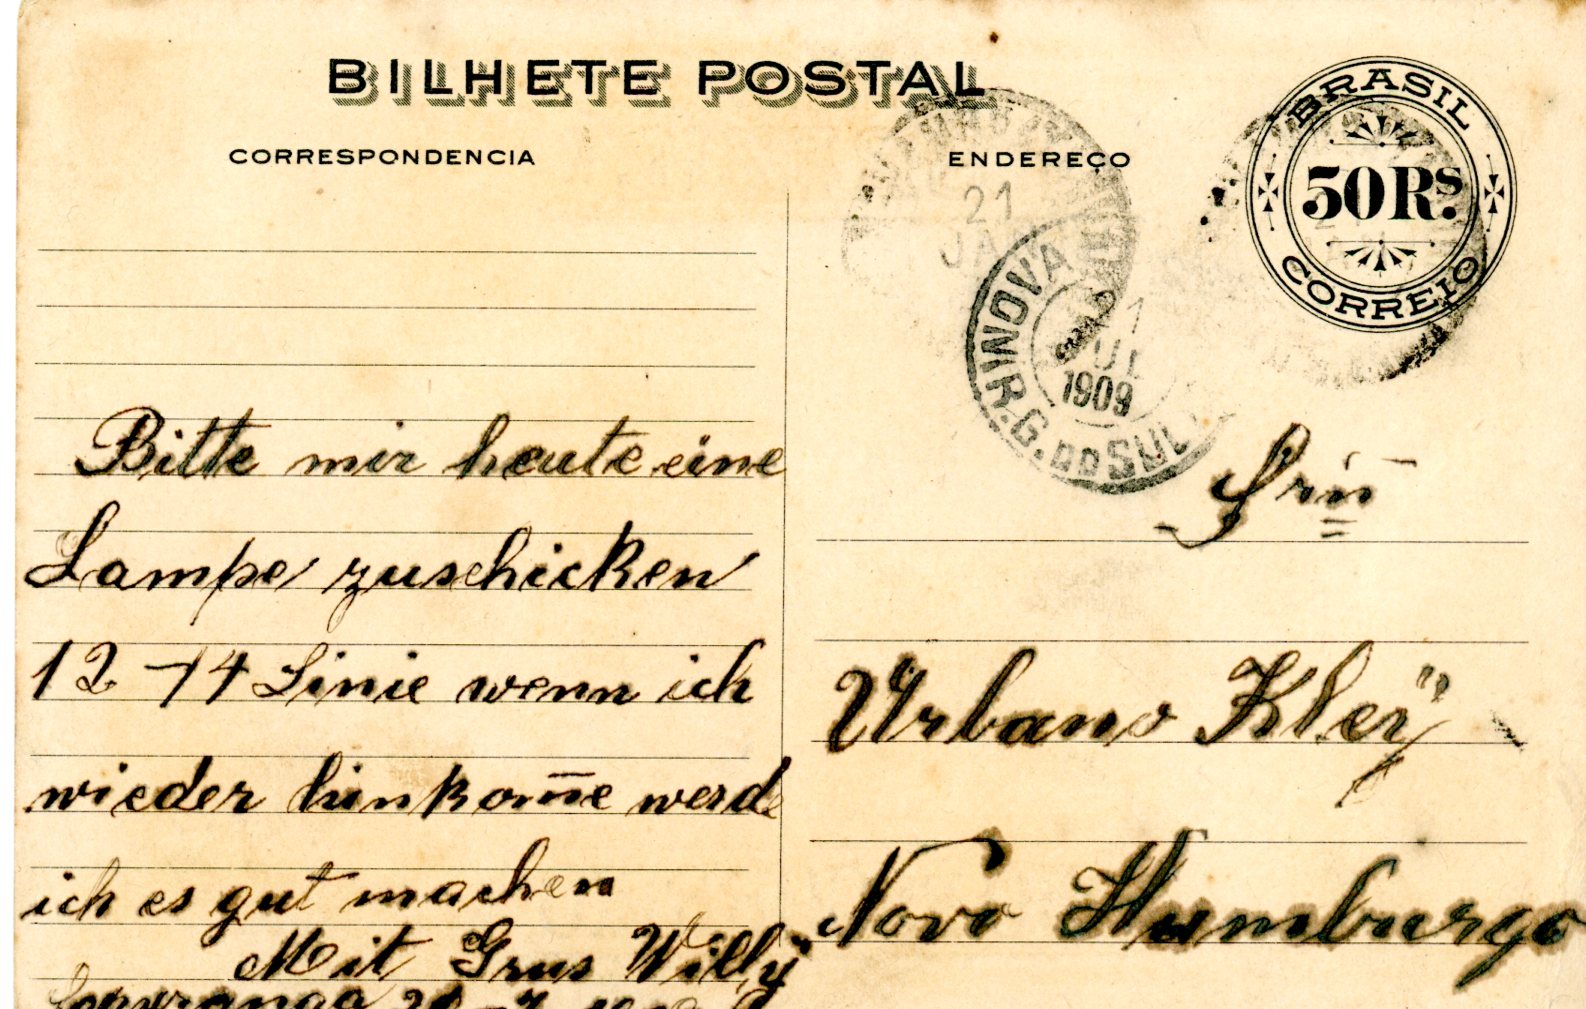 BILHETE POSTAL
CORRESPONDENCIA
ENDEREÇO
BRASIL
50 Rs.
CORREIO
21
JA
RINOVA
1
UL
1909
R.G. DO SUL
Bitte mir heute eine
Lampe zuschicken
12-14 Linie wenn ich
wieder hinkom̅e werde
ich es gut machen
Mit Grus Willÿ
Urbano Kleÿ
Novo Hamburgo